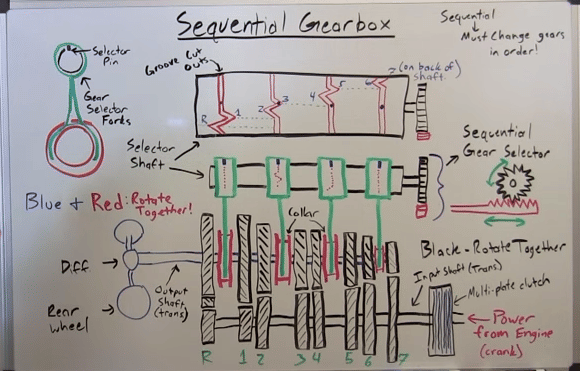 Sequential Gearbox
Sequential
Must Change gears
in order!
Selector
Pin
Gear
Selector
Forks
Groove Cut
outs
R
1
2
3
4
5
6
7
(on back of
shaft)
Selector
Shaft
Sequential
Gear Selector
Blue + Red: Rotate
Together!
Collar
Black - Rotate Together
Input Shaft (Trans)
Multi-plate clutch
Diff
Output
Shaft
(trans)
Rear
wheel
Power
from Engine
(crank)
R 1 2 3 4 5 6 7